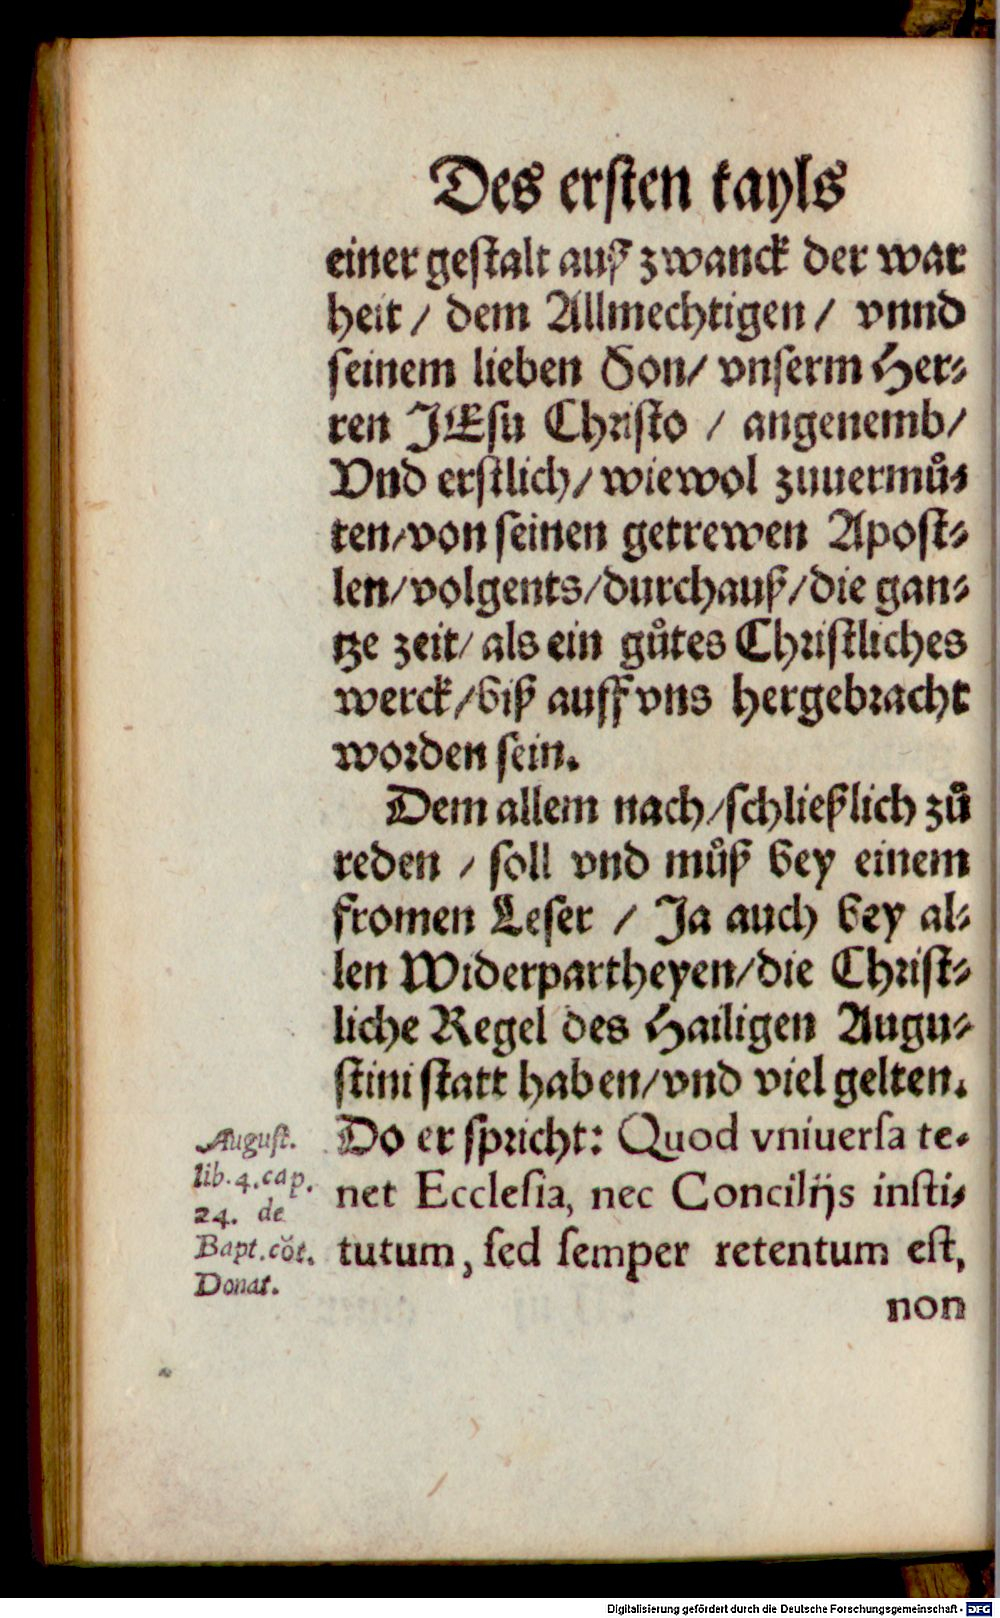 Des ersten tayls
einer gestalt auß zwanck der war
heit / dem Allmechtigen / vnnd
seinem lieben Son / vnserm Her-
ren JEsu Christo / angenemb /
Vnd erstlich / wiewol zuuermuͦ-
ten / von seinen getrewen Apost-
len / volgents / durchauß / die gan-
tze zeit / als ein guͦtes Christliches
werck / biß auff vns hergebracht
worden sein.
Dem allem nach / schließlich zuͦ
reden / soll vnd muͦß bey einem
fromen Leser / Ja auch bey al-
len Widerpartheyen / die Christ-
liche Regel des Hailigen Augu-
stini statt haben / vnd viel gelten.
Do er spricht: Quod vniuersa te-
net Ecclesia, nec Concilijs insti-
tutum, sed semper retentum est,
non
August.
lib. 4. cap.
24. de
Bapt. cõt.
Donat.
Digitalisierung gefördert durch die Deutsche Forschungsgemeinschaft - DFG